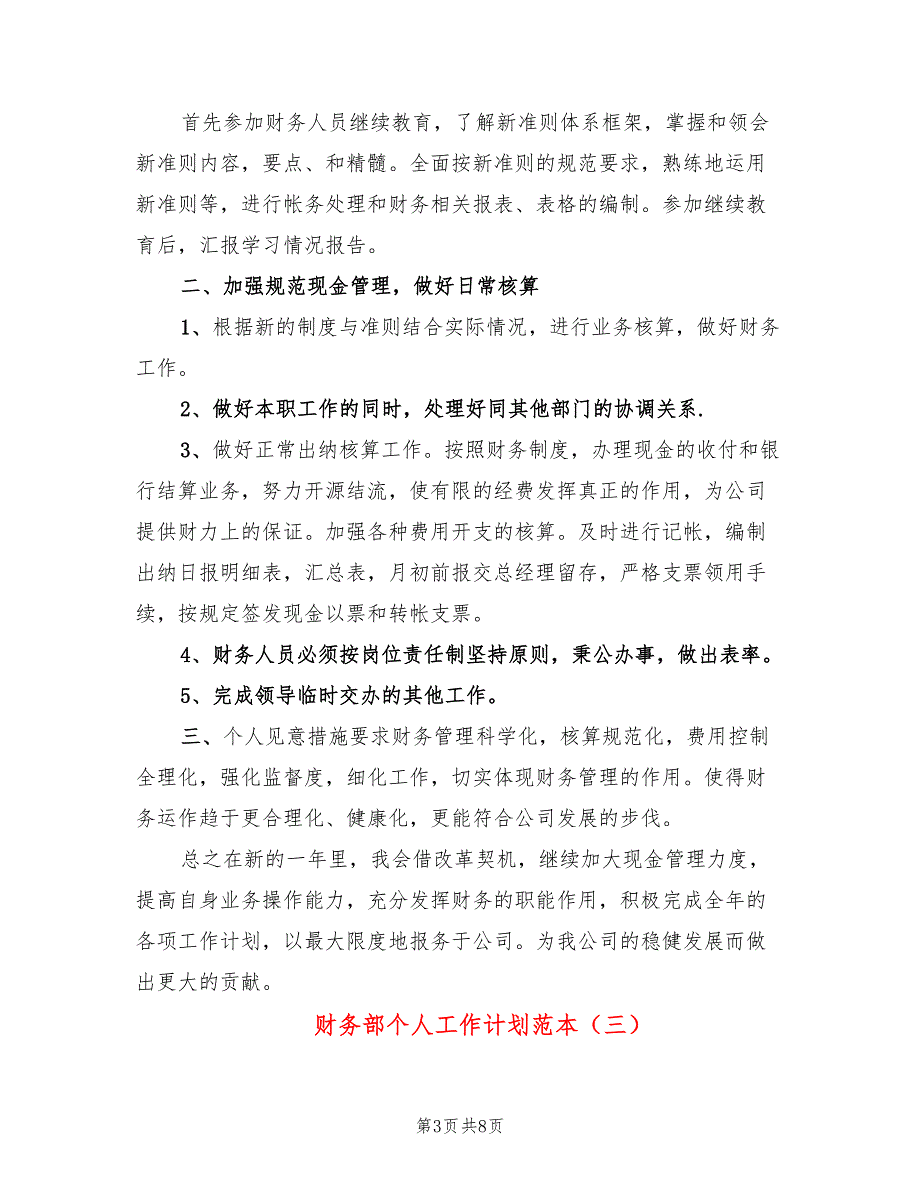 首先参加财务人员继续教育，了解新准则体系框架，掌握和领会
新准则内容，要点、和精髓。全面按新准则的规范要求，熟练地运用
新准则等，进行帐务处理和财务相关报表、表格的编制。参加继续教
育后，汇报学习情况报告。
二、加强规范现金管理，做好日常核算
1、根据新的制度与准则结合实际情况，进行业务核算，做好财务
工作。
2、做好本职工作的同时，处理好同其他部门的协调关系.
3、做好正常出纳核算工作。按照财务制度，办理现金的收付和银
行结算业务，努力开源结流，使有限的经费发挥真正的作用，为公司
提供财力上的保证。加强各种费用开支的核算。及时进行记帐，编制
出纳日报明细表，汇总表，月初前报交总经理留存，严格支票领用手
续，按规定签发现金以票和转帐支票。
4、财务人员必须按岗位责任制坚持原则，秉公办事，做出表率。
5、完成领导临时交办的其他工作。
三、个人见意措施要求财务管理科学化，核算规范化，费用控制
全理化，强化监督度，细化工作，切实体现财务管理的作用。使得财
务运作趋于更合理化、健康化，更能符合公司发展的步伐。
总之在新的一年里，我会借改革契机，继续加大现金管理力度，
提高自身业务操作能力，充分发挥财务的职能作用，积极完成全年的
各项工作计划，以最大限度地报务于公司。为我公司的稳健发展而做
出更大的贡献。
财务部个人工作计划范本（三）
第3页 共8页